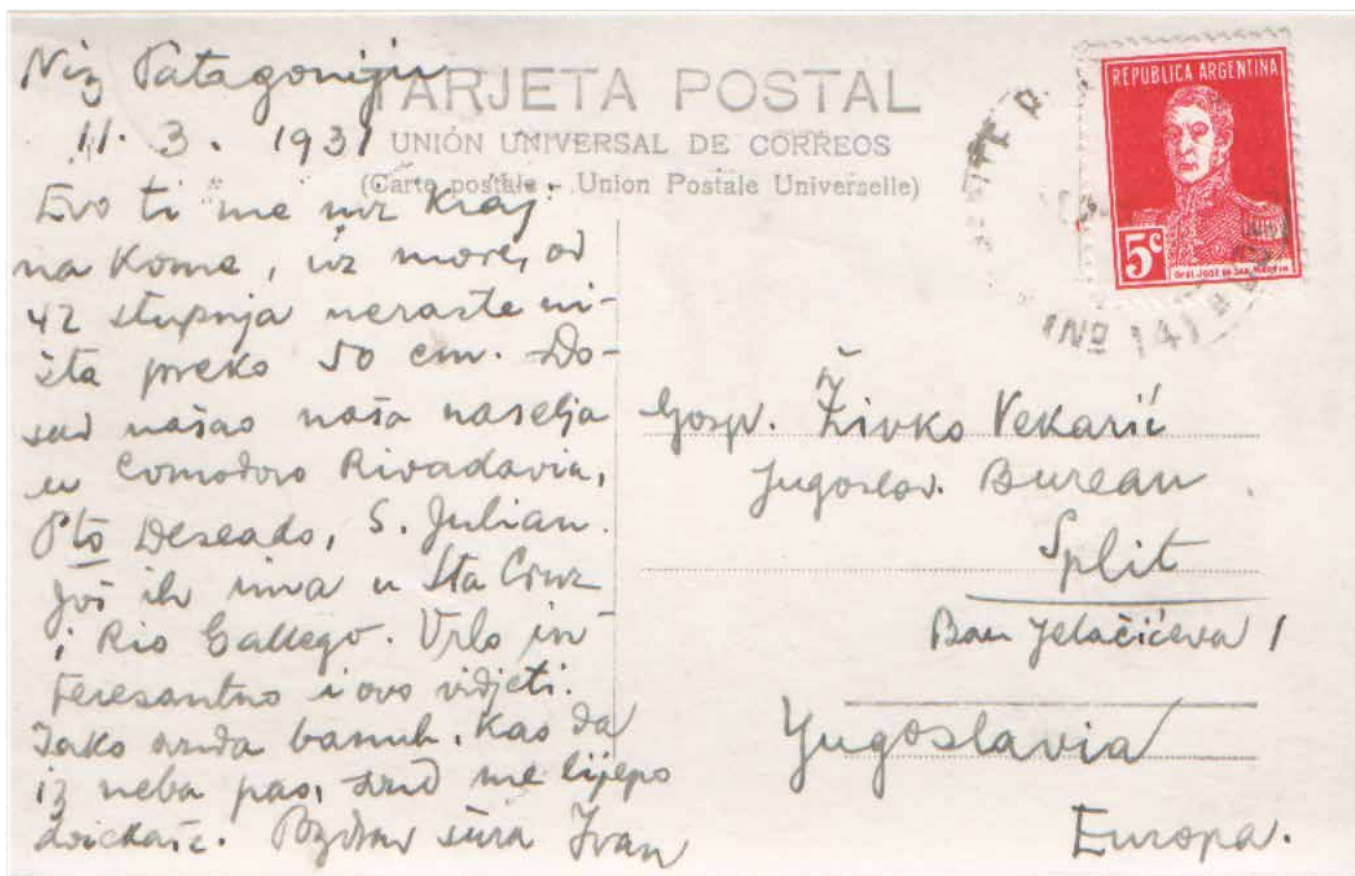 Niz Patagoniju
11. 3. 1931
TARJETA POSTAL
UNIÓN UNIVERSAL DE CORREOS
(Carte postale - Union Postale Universelle)
Evo ti me niz kraj
na kome, uz more, od
42 stupnja neraste ni-
šta preko 50 cm. Do-
sad našao naša naselja
u Comodoro Rivadavia,
Pto Deseado, S. Julian.
Još ih ima u Sta Cruz
i Rio Gallego. Vrlo in-
teresantno i ovo vidjeti.
Iako svuda banuh. Kao da
iz neba pao, svud me lijepo
Pozdrav Ivan
REPUBLICA ARGENTINA
5c
GRAL JOSÉ DE SAN MARTIN
Nº 141
Gosp. Živko Vekarić
Jugoslav. Bureau
Split
Ban Jelačićeva 1
Yugoslavia
Europa.